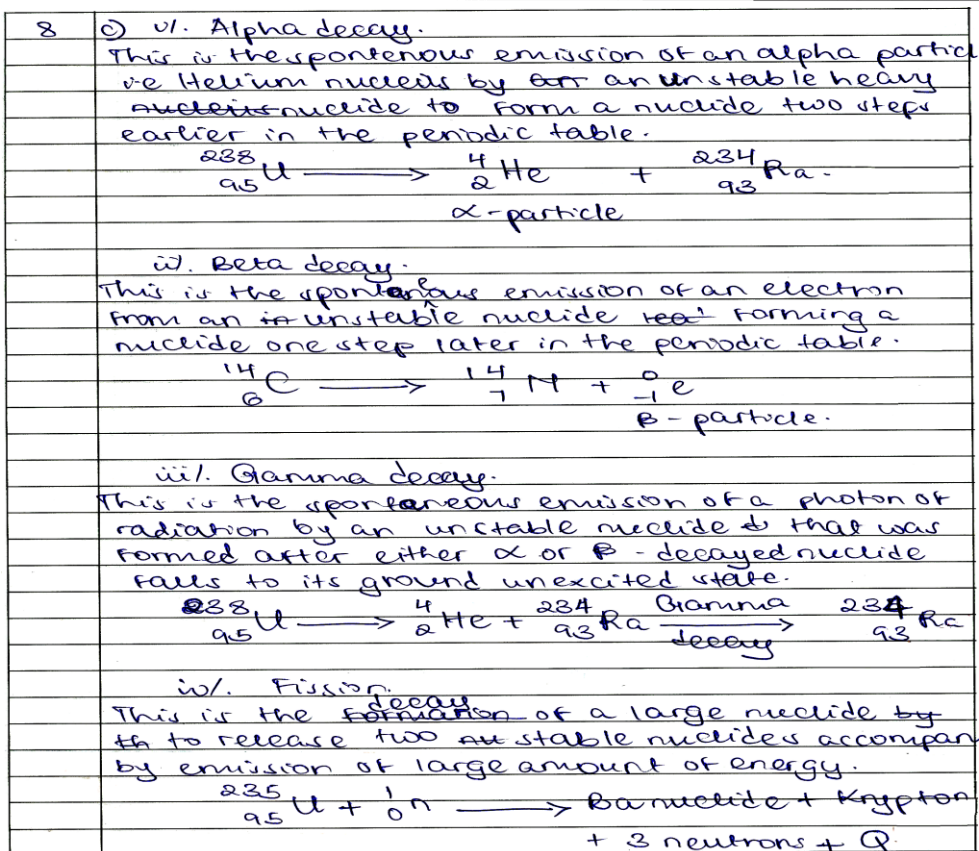 8 c) i/. Alpha decay.
This is the spontenous emission of an alpha partic
i.e Helium nucleus by an unstable heavy
nuclide to form a nuclide two steps
earlier in the periodic table.
²³⁸₉₅U ⟶ ⁴₂He + ²³⁴₉₃Ra.
α-particle
ii). Beta decay.
This is the spontaneous emission of an electron
from an unstable nuclide forming a
nuclide one step later in the periodic table.
¹⁴₆C ⟶ ¹⁴₇N + ⁰₋₁e
β - particle.
iii/. Gamma decay.
This is the spontaneous emission of a photon of
radiation by an unstable nuclide that was
formed after either α or β - decayed nuclide
falls to its ground unexcited state.
²³⁸₉₅U ⟶ ⁴₂He + ²³⁴₉₃Ra Gamma decay ⟶ ²³⁴₉₃Ra
iv/. Fission.
This is the decay of a large nuclide
to release two stable nuclides accompan
by emission of large amount of energy.
²³⁵₉₅U + ¹₀n ⟶ Ba nuclide + Krypton
+ 3 neutrons + Q